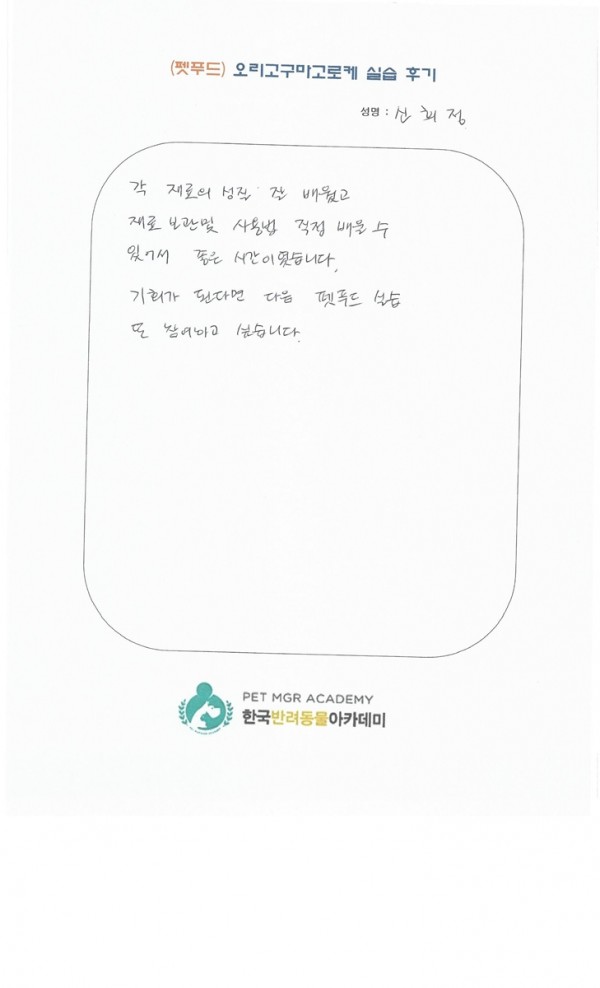 (펫푸드) 오리고구마고로케 실습 후기
성명 : 신희정
각 재료의 성질 잘 배웠고
재료 보관및 사용법 직접 배울 수
있어서 좋은 시간이였습니다.
기회가 된다면 다음 펫푸드 실습
또 참여하고 싶습니다.
PET MGR ACADEMY
한국반려동물아카데미